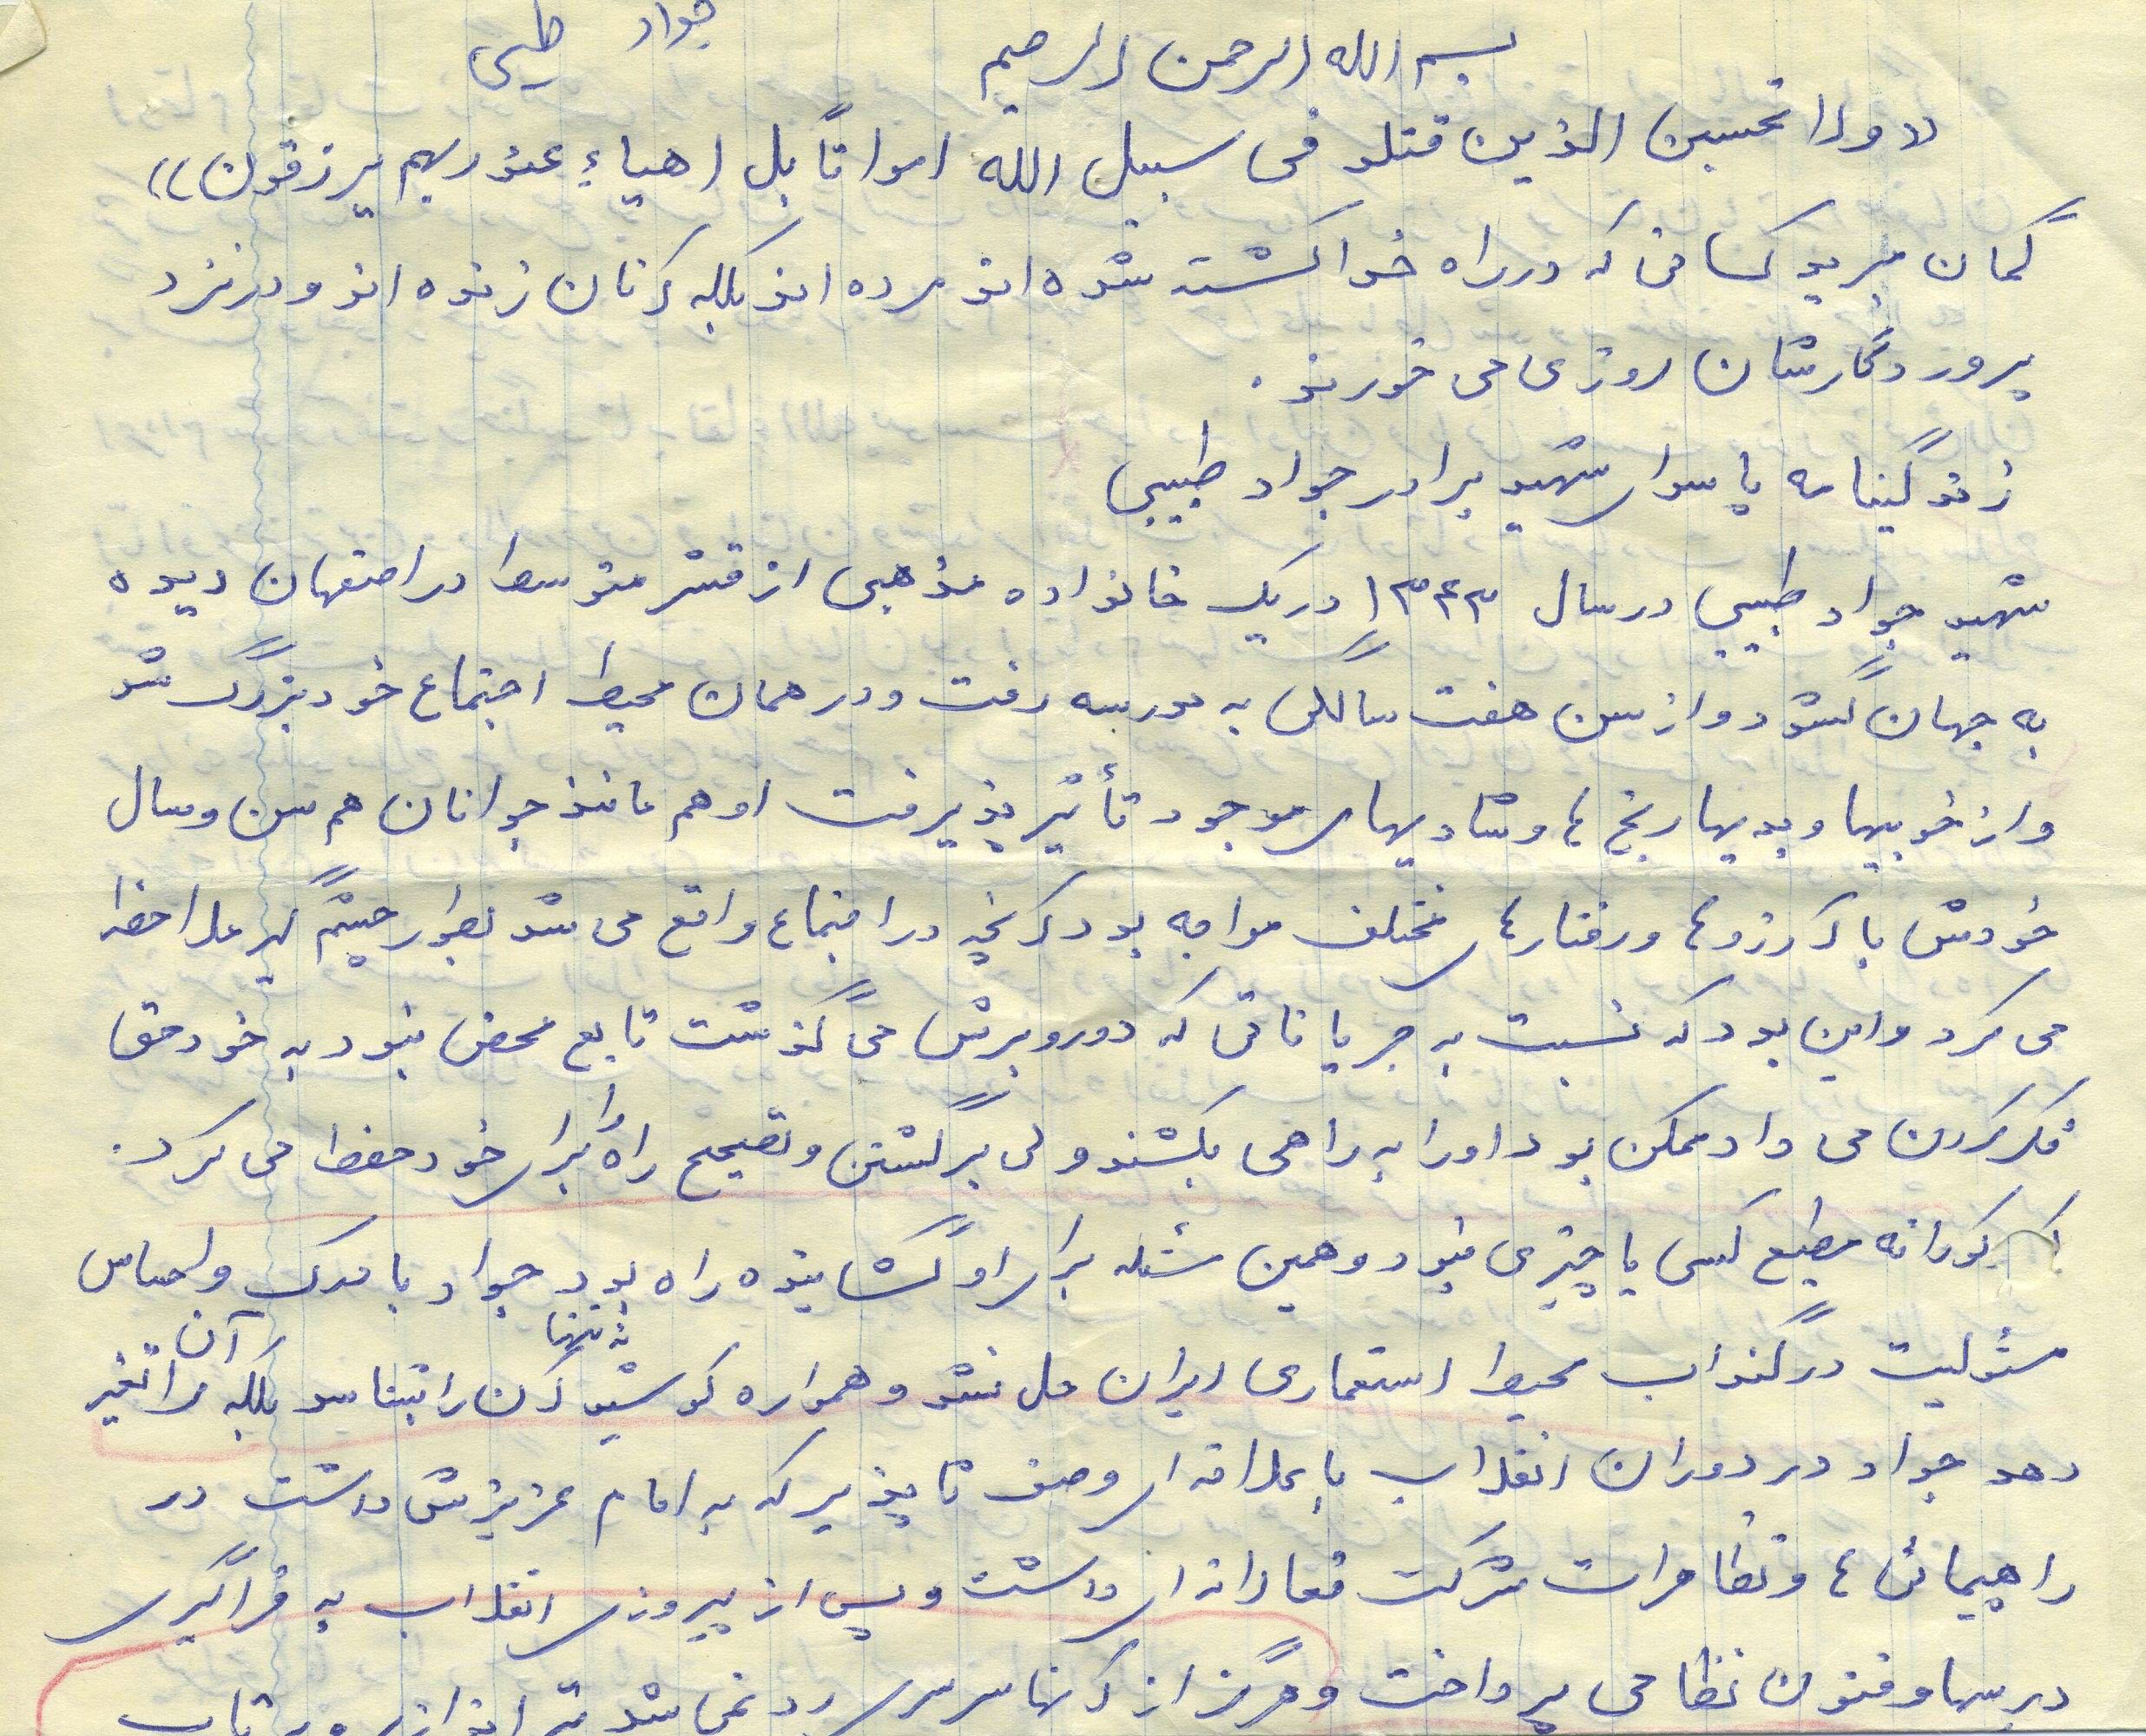 جواد طبیبی
بسم الله الرحمن الرحیم
«ولا تحسبن الذین قتلو فی سبیل الله امواتاً بل احیاءٍ عند ربهم یرزقون»
گمان مبرید کسانی که در راه خدا کشته شده اند مرده اند بلکه آنان زنده اند و در نزد
پروردگارشان روزی می خورند.
زندگینامه پاسدار شهید برادر جواد طبیبی
شهید جواد طبیبی در سال ۱۳۴۳ در یک خانواده مذهبی از قشر متوسط در اصفهان دیده
به جهان گشود و از سن هفت سالگی به مدرسه رفت و در همان محیط اجتماع خود بزرگ شد
و از خوبیها و بدیها رنج ها و شادیهای موجود تأثیر پذیرفت او هم مانند جوانان هم سن و سال
خودش با آرزوها و رفتارهای مختلف مواجه بود آنچه در اجتماع واقع می شد بطور چشم گیر ملاحظه
می کرد و این بود که نسبت به جریاناتی که دور و برش می گذشت تابع محض نبود به خود حق
فکر کردن می داد ممکن بود او را به راهی بکشند ولی برگشتن و تصحیح راه را برای خود حفظ می کرد.
کورانه مطیع کسی یا چیزی نبود و همین مسئله برای او گشاینده راه بود جواد با درک و احساس
مسئولیت در گنداب محیط استعماری ایران حل نشد و همواره کوشید نه تنها آن را بشناسد بلکه آن را تغیر
دهد جواد در دوران انقلاب با علاقه ای وصف ناپذیر که به امام عزیزش داشت در
راهپیمائی ها و تظاهرات شرکت فعالانه ای داشت و پس از پیروزی انقلاب به فراگیری
درسها و فنون نظامی پرداخت و هرگز از آنها سرسری رد نمی شد تیراندازی و پرتاب